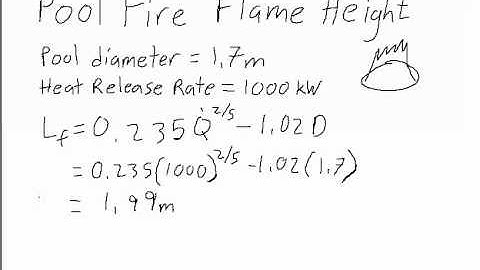 Pool Fire Flame Height
Pool diameter = 1,7m
Heat Release Rate = 1000 kW
L_f = 0.235 Q̇^2/5 - 1.02 D
= 0.235(1000)^2/5 - 1.02(1.7)
= 1,99m